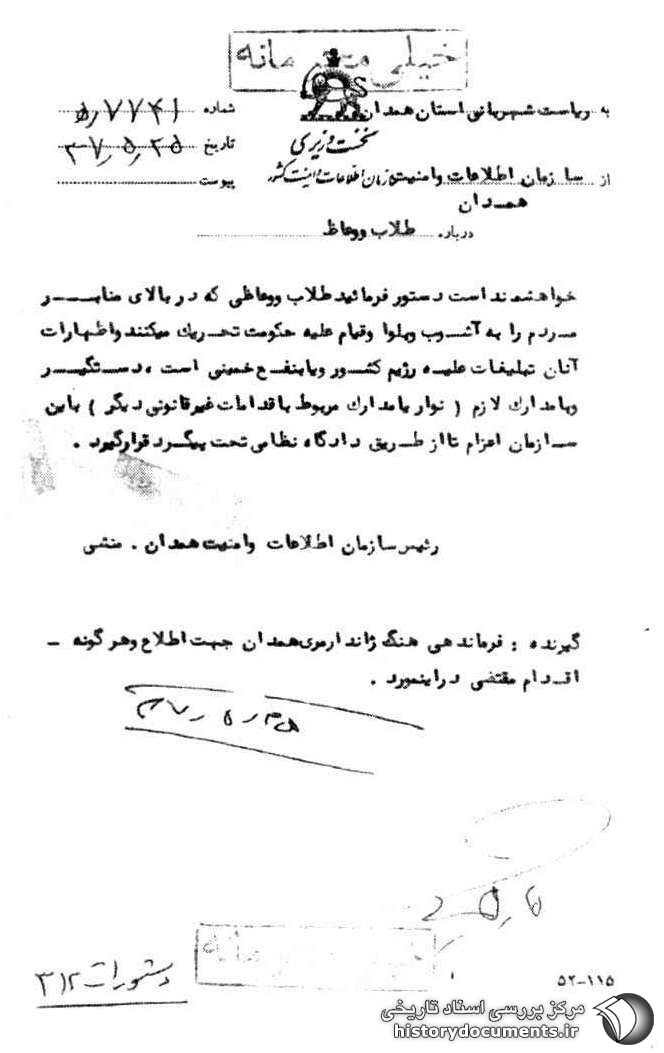 خیلی محرمانه
به ریاست شهربانی استان همدان
شماره ۵٫۷۷۴۱
نخست وزیری
تاریخ ۳۷٫۵٫۲۵
از سازمان اطلاعات وامنیت سازمان اطلاعات و امنیت کشور
پیوست
همدان
درباره طلاب ووعاظ
خواهشمند است دستور فرمائید طلاب ووعاظی که در بالای منابر
مردم را به آشوب وبلوا وقیام علیه حکومت تحریک میکنند واظهارات
آنان تبلیغات علیه رژیم کشور ویابنفع خمینی است ، دستگیر
وبامدارک لازم ( نوار یامدارک مربوط باقدامات غیرقانونی دیگر ) باین
سازمان اعزام تااز طریق دادگاه نظامی تحت پیگرد قرارگیرد .
رئیس سازمان اطلاعات وامنیت همدان . منشی
گیرنده : فرماندهی هنگ ژاندارمری همدان جهت اطلاع وهرگونه -
اقدام مقتضی دراینمورد .
دستورات ۳۱۲
۵۲-۱۱۵
مرکز بررسی اسناد تاریخی
historydocuments.ir